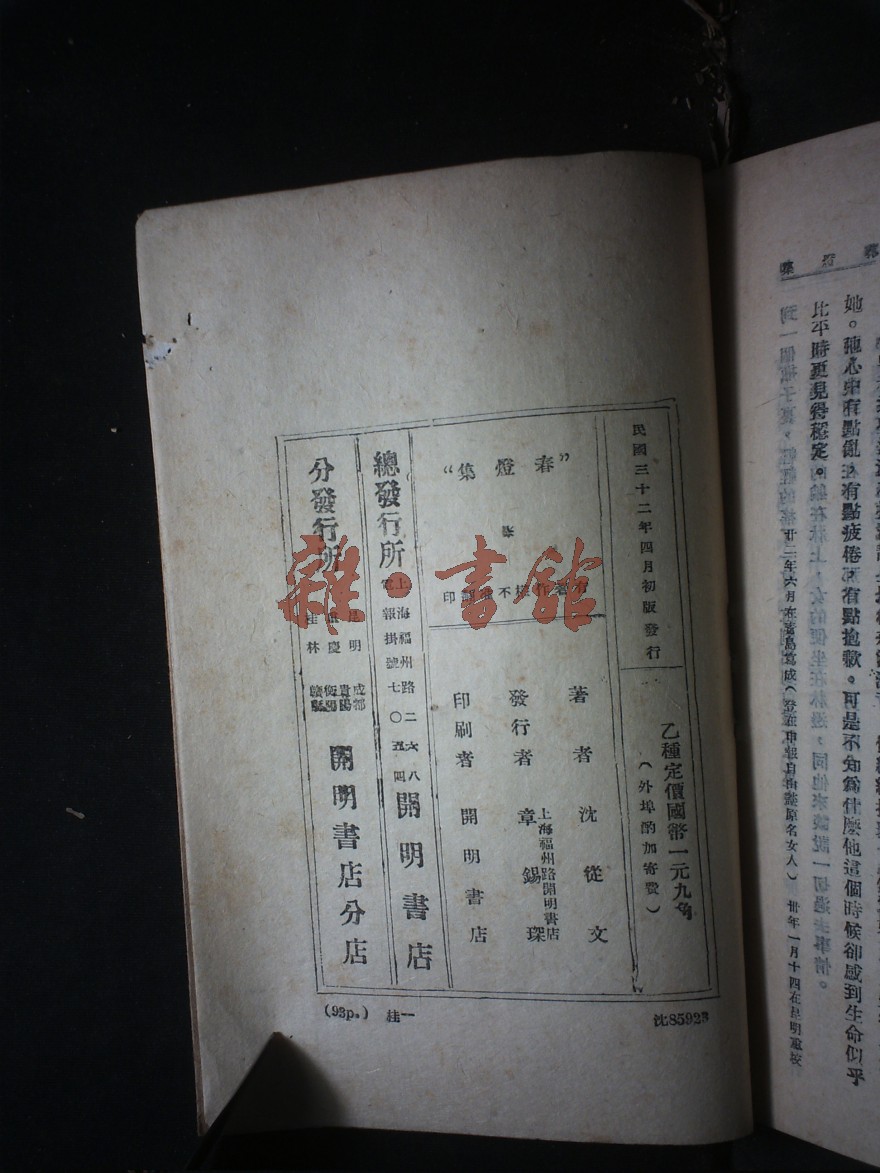 春燈集
她。他心中有點亂在有點疲倦有點抱歉。可是不知為什麼他這個時候卻感到生命似乎
比平時更見得穩定。
廿二年六月在青島寫成(登在申報自由談原名女人)
卅年一月十四在昆明重校
民國三十二年四月初版發行
乙種定價國幣一元九角
(外埠酌加寄費)
“春燈集”
有著作權不准翻印
著者 沈從文
發行者 章錫琛
上海福州路開明書店
印刷者 開明書店
總發行所
上海福州路二六八
電報掛號七〇五四
開明書店
分發行所
昆明 成都
重慶 貴陽
桂林 衡陽
開明書店分店
(92p.) 桂一
沈85923
雜·書館